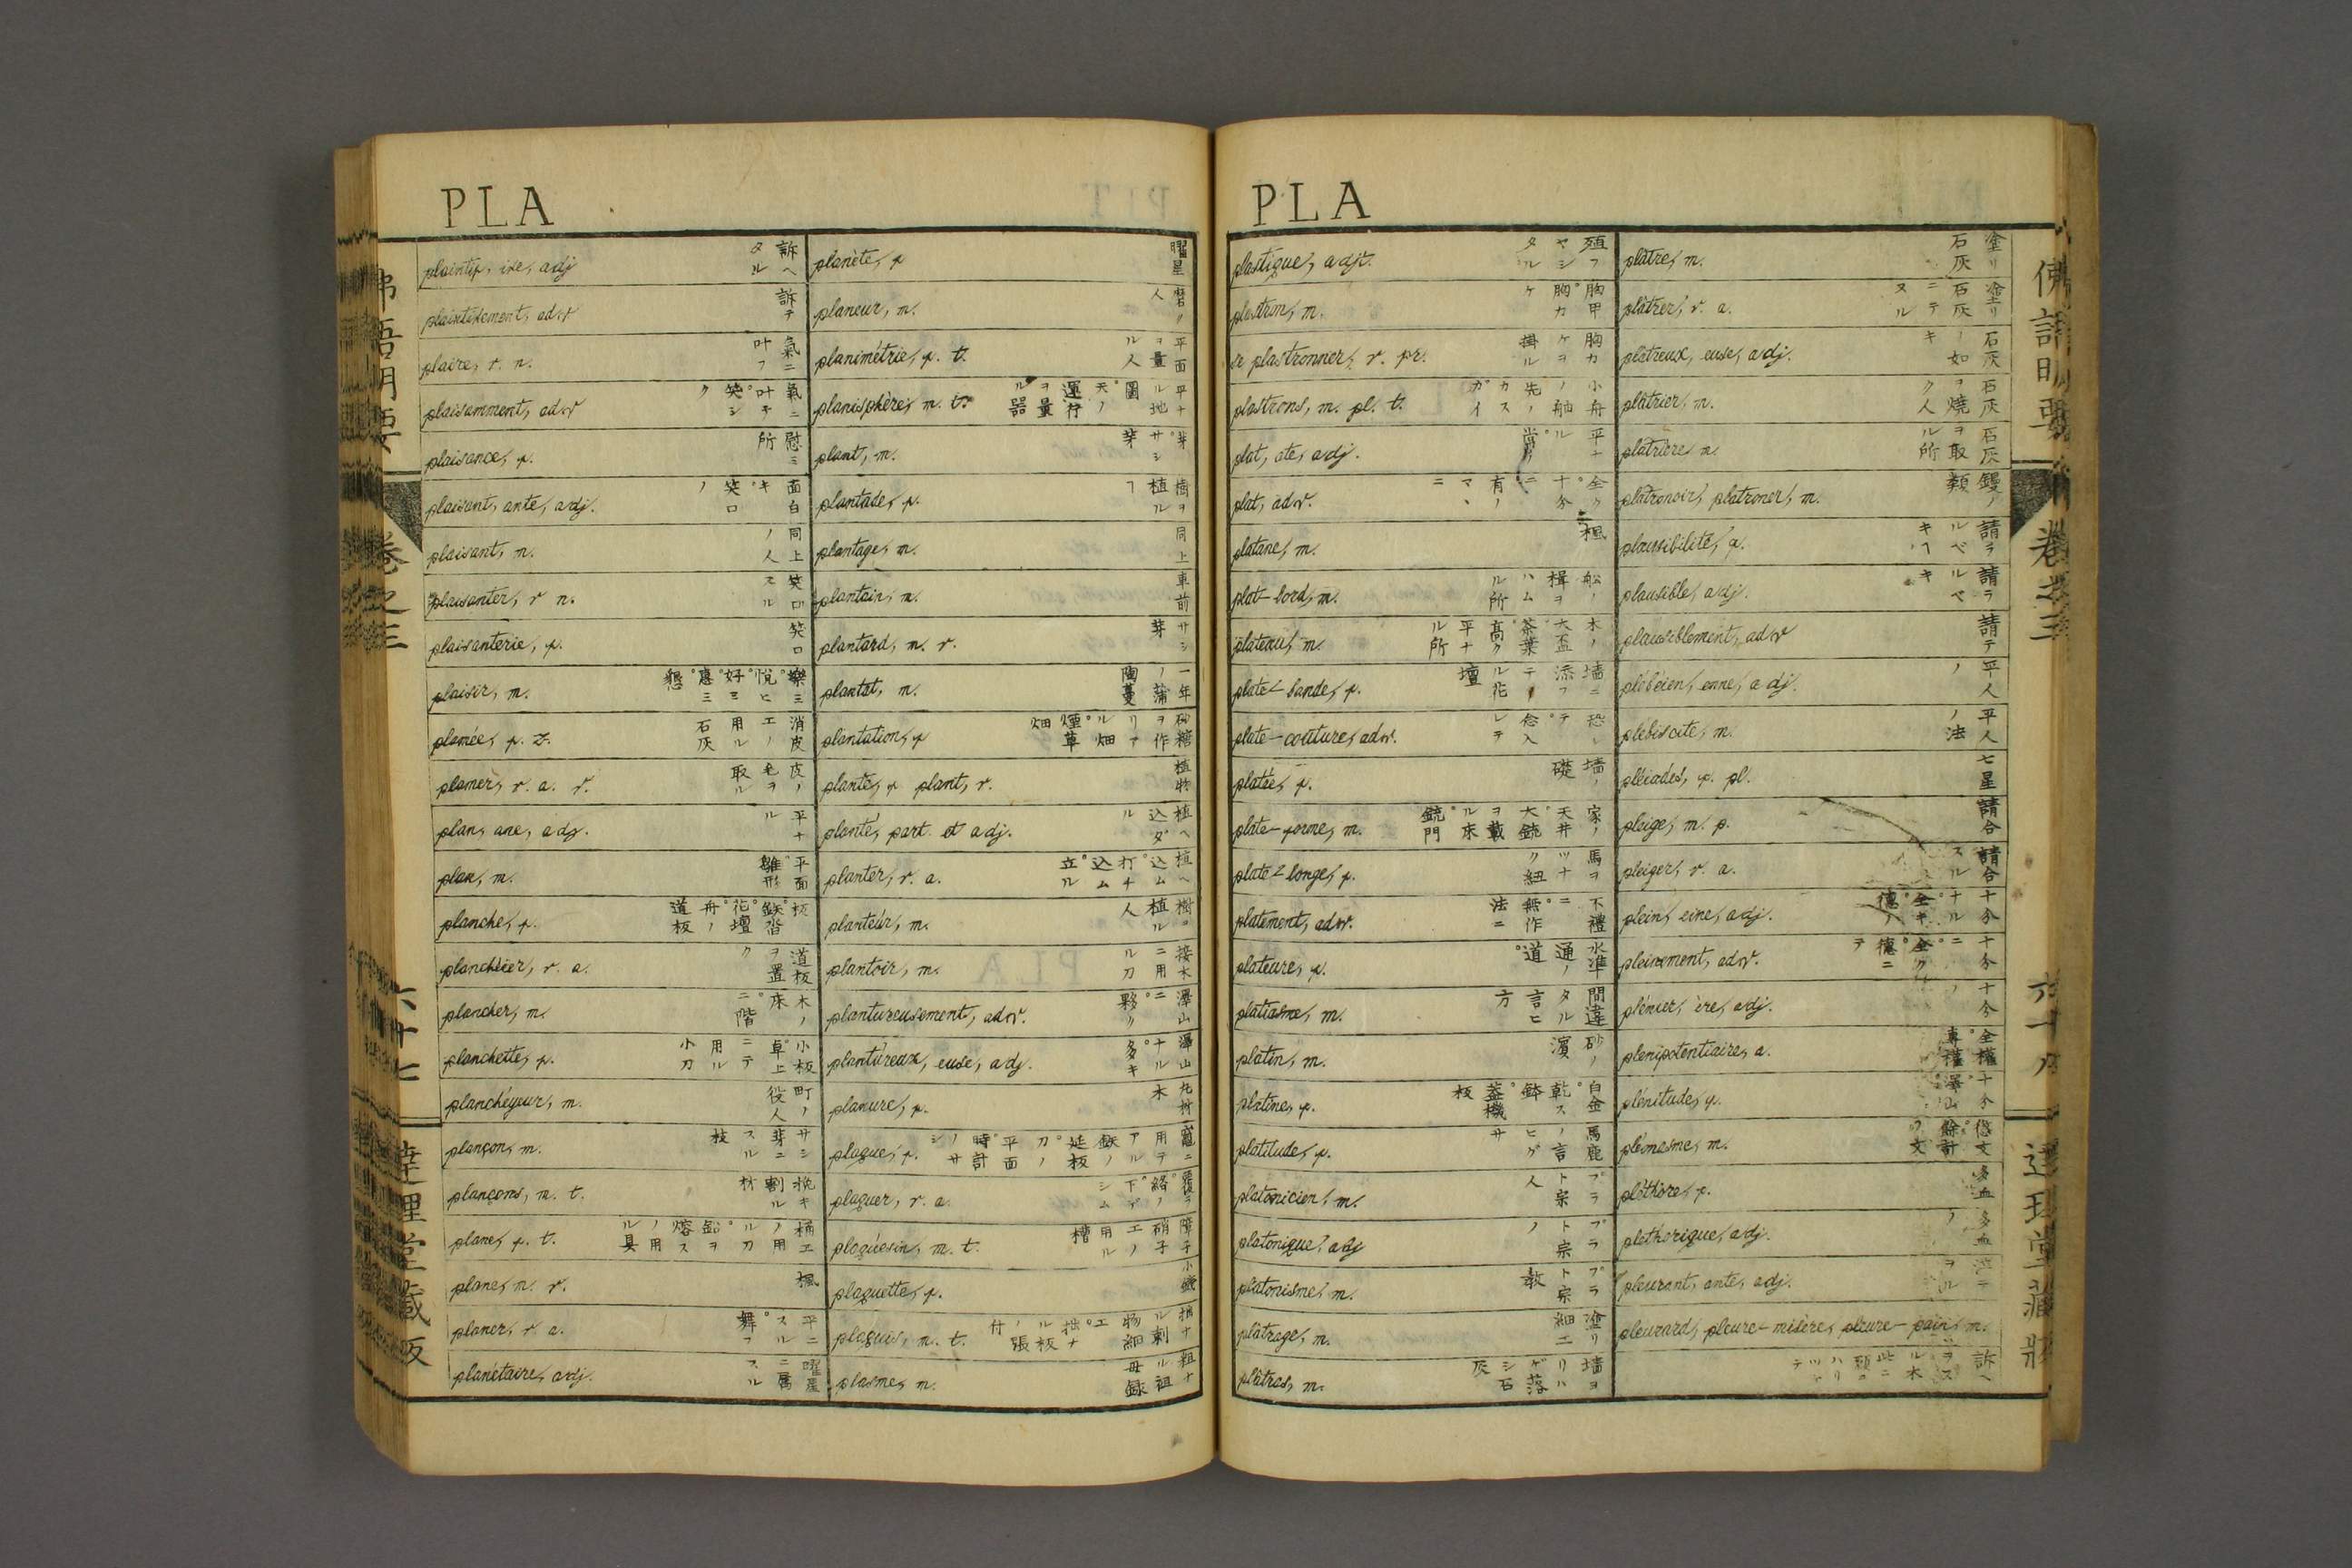 PLA
plaintif, ive, adj 訴ヘタル
plaintivement, adv 訴テ
plaire, v. n. 氣ニ叶フ
plaisamment, adv 氣ニ叶キ。笑シク
plaisance, f. 慰ミ所
plaisant, ante, adj. 面白キ。笑口ノ
plaisant, m. 同上ノ人
plaisanter, v n. 笑口スル
plaisanterie, f. 笑口
plaisir, m. 樂ミ。悦ヒ。好ミ。惠ミ。懇
plamée, f. t. 消皮エノ用ル石灰
plamer, v. a. v. 皮ノ毛ヲ取ル
plan, ane, adj. 平ナル
plan, m. 平面。雛形
planche, f. 板。鉄沓。花壇。舟ノ道板
planchéier, v. a. 道板ヲ置ク
plancher, m. 木ノ床。二階
planchette, f. 小板。卓上ニテ用ル小刀
planchéyeur, m. 町ノ役人
plançon, m. サシ芽ニスル枝
plançons, m. t. 挽キ割ル材
plane, f. t. 桶工ノ用ル刀。鉛ヲ熔スノ用ル具
plane, m. v. 楓
planer, v. a. 平ニスル。舞フ
planétaire, adj. 曜星ニ屬スル
planète, f 曜星
planeur, m. 磨ク人
planimétrie, f. t. 平面ヲ量ル人
planisphère, m. t. 平ナル地圖。天ノ運行ヲ量ル器
plant, m. 芽。サシ芽
plantade, f. 樹ヲ植ルヿ
plantage, m. 同上
plantain, m. 車前
plantard, m. v. サシ芽
plantat, m. 一年ノ蒲陶蔓
plantation, f 砂糖ヲ作リアル畑。煙草畑
plante, f plant, v. 植物
planté, part et adj. 植ヘ込ダル
planter, v. a. 植ヘ込ム。打チ込ム。立ル
planteur, m. 樹ヲ植ル人
plantoir, m. 接木ニ用ル刀
plantureusement, adv. 澤山ニ。夥ク
plantureux, euse, adj. 澤山ナル。多キ
planure, f. 木
plaque, f.
plaquer, v. a.
plaquesin, m. t. 障子硝子エノ用ル槽
plaquette, f. 小錢
plaquis, m. t.
plasme, m.
佛語明要 卷之三 六十七 達理堂藏版
PLA
plastique, adj. 殖フヤシタル
plastron, m. 胸甲。胸カケ
se plastronner, v. pr. 胸カケヲ掛ル
plastrons, m. pl. t. 小舟ノ舳先ノカスガイ
plat, ate, adj. 平ナル。
plat, adv. 全ク。十分ニ。有ノマヽニ
platane, m. 楓
plat-bord, m. 船ノ楫ヲハムル所
plateau, m. 木ノ大盃。茶葉。高ク平ナル所
plate-bande, f. 墻ニ添フテ花ノ壇
plate-couture, adv.
platée, f. 墻ノ礎
plate-forme, m. 家ノ天井。大銃ヲ載ル床。銃門
plate-longe, f. 馬ヲツナク紐
platement, adv. 不禮ニ。無作法ニ
plateure, f. 水準ノ通道。
platiasme, m. 間違タル言ヒ方
platin, m. 砂ノ濱
platine, f. 白金。
platitude, f. 馬鹿ノ言ヒグサ
platonicien, m. プラト宗人
platonique, adj プラト宗ノ
platonisme, m. プラト宗教
plâtrage, m. 塗リ細工
plâtras, m.
plâtre, m. 塗リ石灰
plâtrer, v. a. 塗リ石灰ニテヌル
plâtreux, euse, adj. 石灰ノ如キ
plâtrier, m. 石灰ヲ燒ク人
plâtrière m. 石灰ヲ取ル所
platronoir, platroner, m. 鏝ノ類
plausibilité, f. 請ラルベキヿ
plausible, adj. 請ラルベキ
plausiblement, adv 請テ
plébéien, enne, adj. 平人ノ
plébiscite, m. 平人ノ法
pléiades, f. pl. 七星
pleige, m. p. 請合
pleiger, v. a. 請合スル
plein, eine, adj. 十分ナル。全キ。德ノ
pleinement, adv. 十分ニ。全ク。德ニテ
plénier, ère, adj. 十分ノ
plenipotentiaire, a. 全權。專權
plénitude, f. 十分。澤山
pléonasme, m. 悠文。餘計ノ文
pléthore, f. 多血
pléthorique, adj. 多血ノ
pleurant, ante, adj.
pleurard, pleure-misère, pleure-pain, m.
佛語明要 卷之三 六十八 達理堂藏版